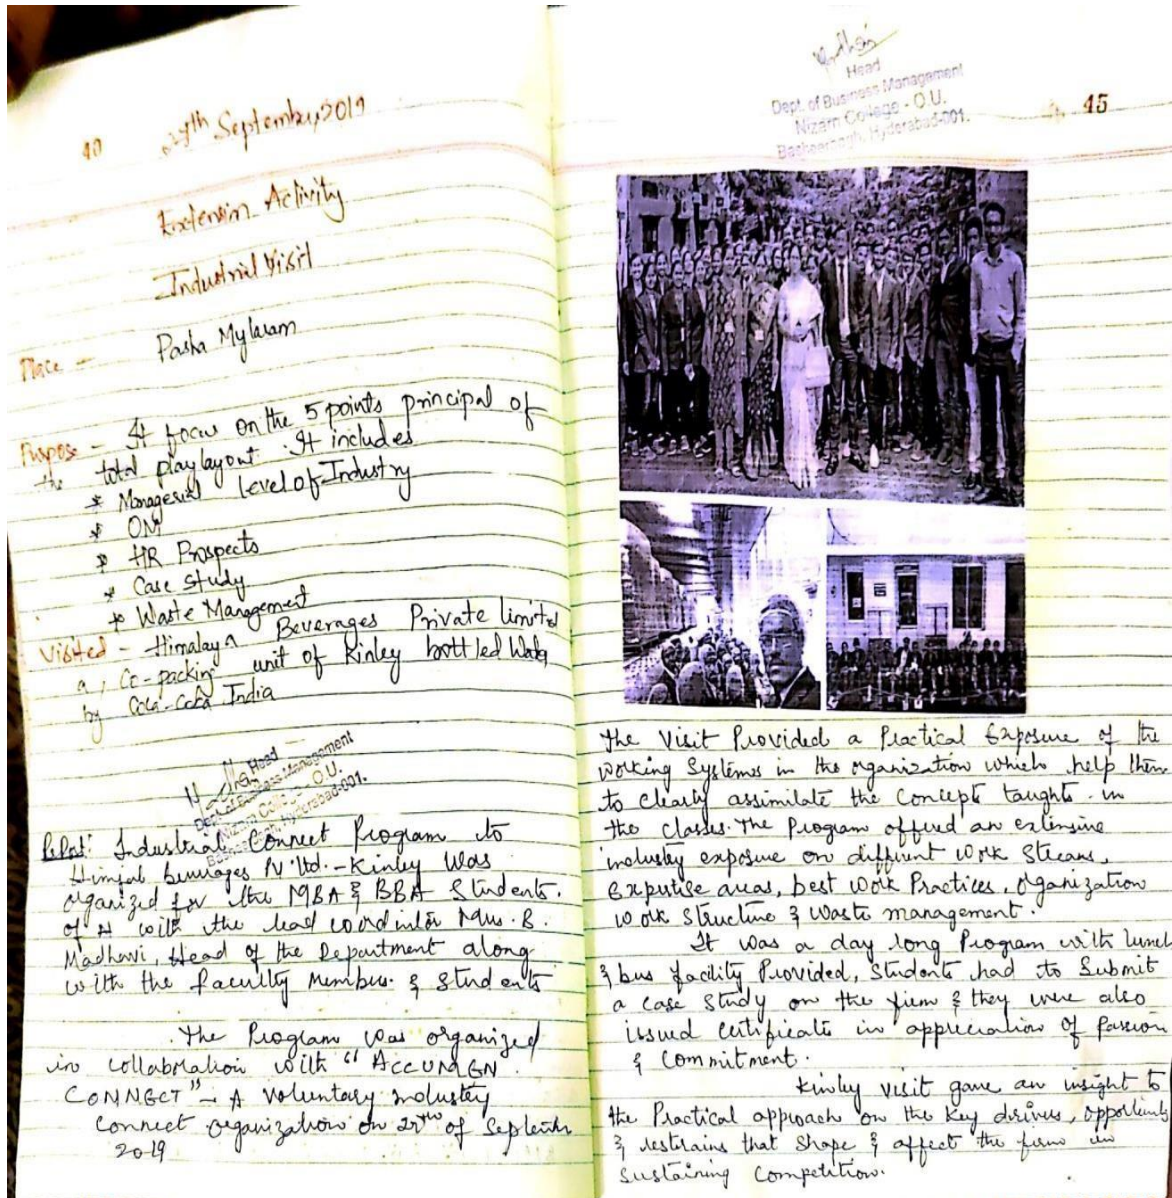 40
September, 2019
Extension Activity
Industrial Visit
Place - Pasha Mylaram
Purpose - It focus on the 5 points principal of
the total playlayout. It includes
* Managerial level of Industry
*
* HR Prospects
* Case Study
* Waste Management
Visited - Himalaya Beverages Private limited
a, Co-packing unit of Kinley bottled
by Coca-Cola India
Head
Dept. of Business Management
Nizam College - O.U.
Basheerbagh, Hyderabad-001.
Industrial Connect Program to
beverages Pv ltd. - Kinley Was
organized for the MBA & BBA Students.
of with the lead
Madhavi, Head of the Department along
with the faculty & Students
The Program was organized
in collaboration with "
CONNECT" - A voluntary industry
Connect organization on of
2019
Head
Dept. of Business Management
Nizam College - O.U.
Basheerbagh, Hyderabad-001.
45
The Visit Provided a Practical Exposure of the
working Systems in the organization which help them
to clearly assimilate the Concept taughts in
the classes. The Program offered an extensive
industry exposure on work
Expertise areas, best work Practices, organization
work structure & waste management.
It was a day long Program with lunch
& bus facility Provided, Students had to Submit
a case study on the firm & they were also
issued certificate in appreciation of Passion
& Commitment.
Kinley visit gave an insight to
the Practical approach on the Key drivers,
& restrains that shape & affect the firm in
Sustaining Competition.